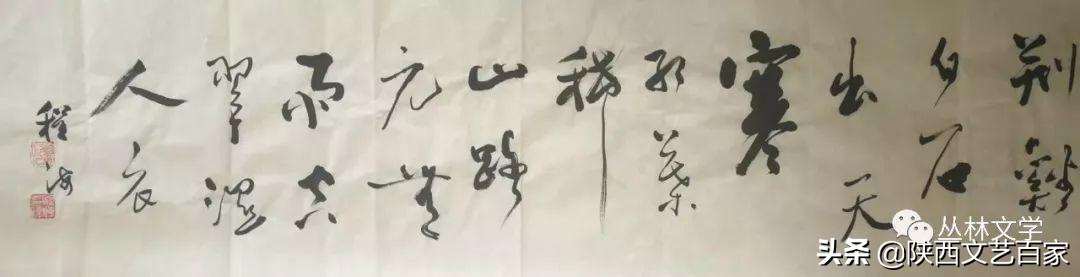 荆谿
白石
出天
寒
紅葉
稀
山路
元無
雨空
翠濕
人衣
程海
丛林文学
头条@陕西文艺百家